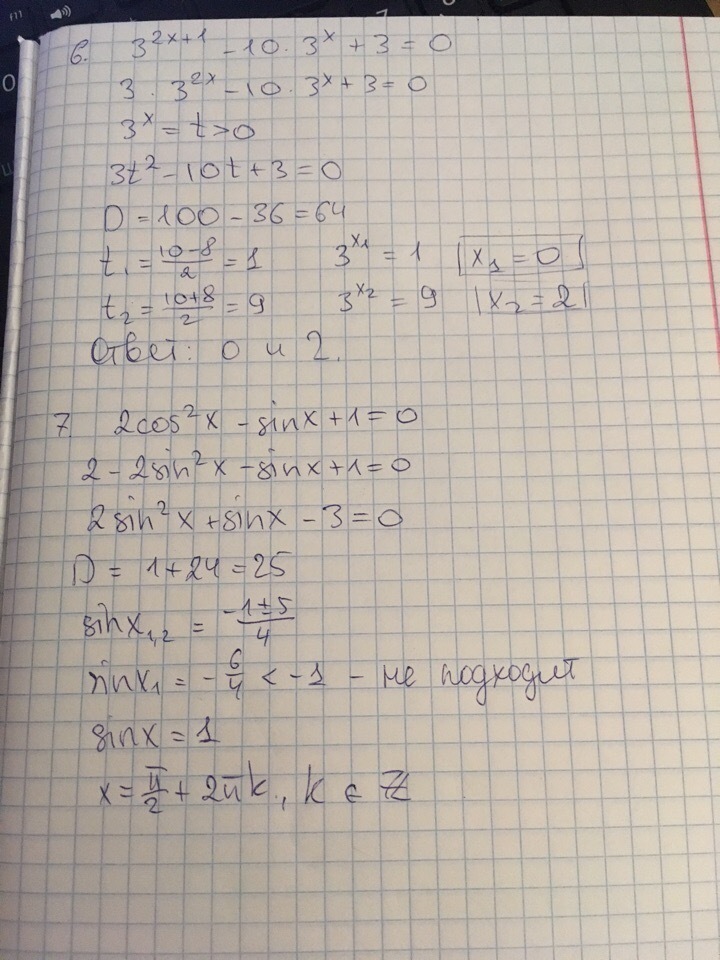 6. 3^{2x+1} - 10 · 3^x + 3 = 0
3 · 3^{2x} - 10 · 3^x + 3 = 0
3^x = t > 0
3t² - 10t + 3 = 0
D = 100 - 36 = 64
t₁ = \frac{10-8}{2} = 1 3^{x₁} = 1 |x₁ = 0|
t₂ = \frac{10+8}{2} = 9 3^{x₂} = 9 |x₂ = 2|
Ответ: 0 и 2.
7. 2cos²x - sinx + 1 = 0
2 - 2sin²x - sinx + 1 = 0
2sin²x + sinx - 3 = 0
D = 1 + 24 = 25
sinx₁,₂ = \frac{-1±5}{4}
sinx₁ = -\frac{6}{4} < -1 - не подходит
sinx = 1
x = \frac{π}{2} + 2πk, k ∈ ℤ